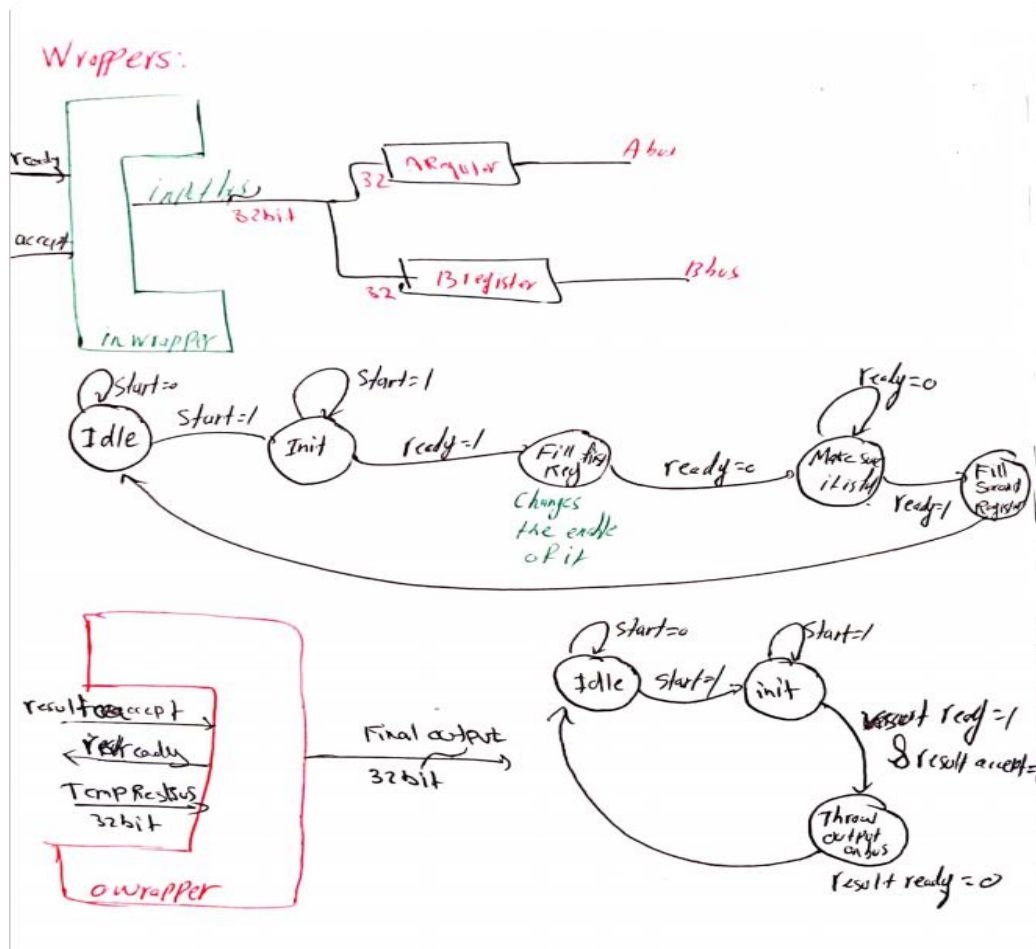 Wrappers:
ready
accept
input bus
32bit
32
A Register
A bus
32
B register
B bus
inwrapper
Start=0
Idle
Start=1
Start=1
Init
ready=1
Fill first
Key
Changes
the enable
of it
ready=0
ready=0
Make sure
ready=1
Fill
Second
Register
result accept
ready
TempResBus
32bit
owrapper
Final output
32bit
Start=0
Idle
Start=1
Start=1
init
result ready=1
& result accept=
Throw
output
on bus
result ready=0